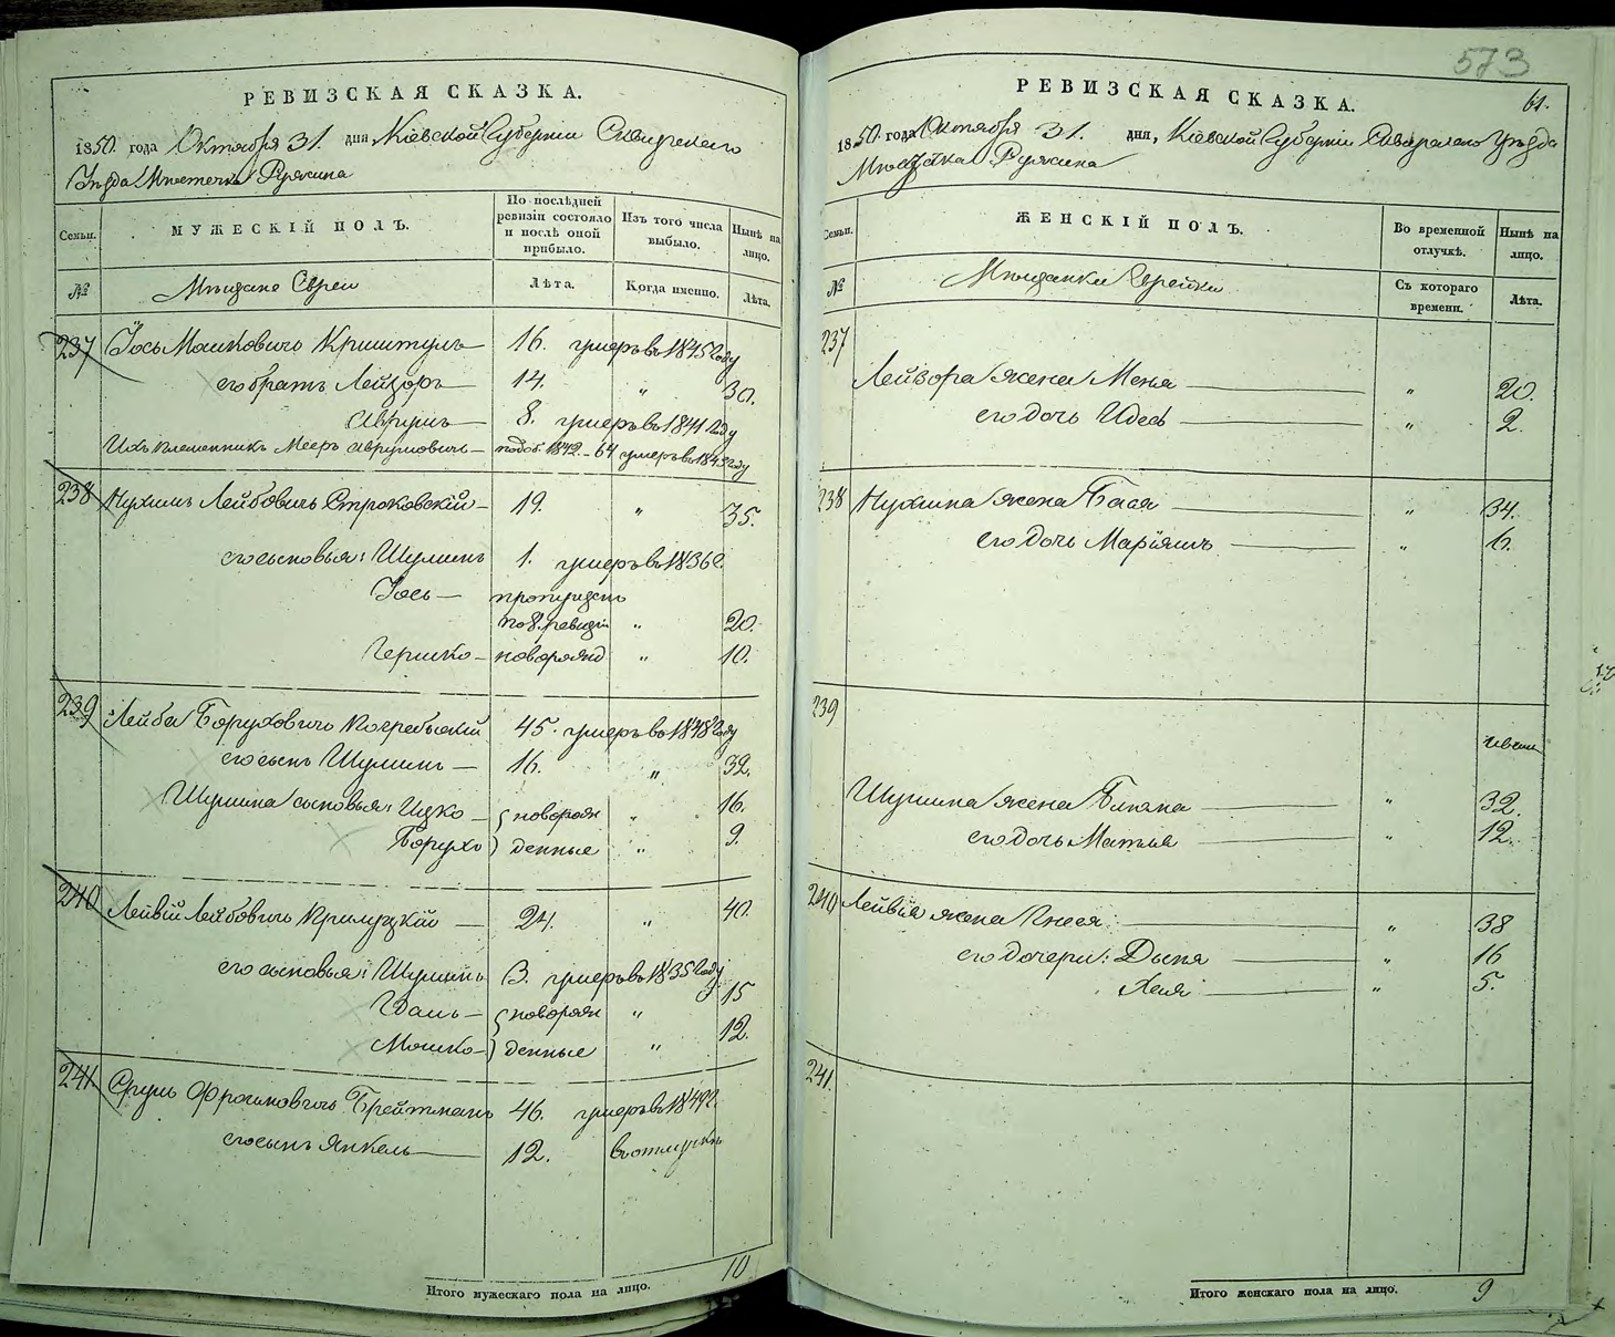 РЕВИЗСКАЯ СКАЗКА.
1850. года Октября 31. дня, Кіевской Губерніи Сквирскаго
Уѣзда Мѣстечка Ружина
Семьи.
МУЖЕСКІЙ ПОЛЪ.
По послѣдней ревизіи состояло и послѣ оной прибыло.
Изъ того числа выбыло.
Нынѣ на лицо.
№
Мѣщане Евреи
Лѣта.
Когда именно.
Лѣта.
237 Іось Мошковичъ Криштулъ 16. умеръ въ 1845 году
его братъ Лейзоръ 14. „ 30.
Аврумъ 8. умеръ въ 1841 году
Ихъ племенникъ Мееръ Аврумовичъ 1842 - 64 умеръ въ 1843 году
238 Нухимъ Лейбовичъ Строковскій 19. „ 35.
его сыновья: Шулимъ 1. умеръ въ 1836 г.
Іось пропущенъ
по 8. ревизіи „ 20.
Гершко новорожд „ 10.
239 Лейба Боруховичъ Погребыскій 45. умеръ въ 1848 году
его сынъ Шулимъ 16. „ 32.
Шулима сыновья: Ицко новорож „ 16.
Борухъ денные „ 9.
240 Лейвій Лейбовичъ Прилуцкій 24. „ 40.
его сыновья: Шулимъ 3. умеръ въ 1835 году
новорож „ 15
Мошко денные „ 12.
241 Сруль Фроимовичъ Брейтманъ 46. умеръ въ 1849 г.
его сынъ Янкель 12. въ отлучкѣ
Итого мужескаго пола на лицо. 10
573
РЕВИЗСКАЯ СКАЗКА.
61.
1850. года Октября 31. дня, Кіевской Губерніи Сквирскаго Уѣзда
Мѣстечка Ружина
Семьи.
ЖЕНСКІЙ ПОЛЪ.
Во временной отлучкѣ.
Нынѣ на лицо.
№
Мѣщанки Еврейки
Съ котораго времени.
Лѣта.
237
Лейзора жена Меня „ 20.
его дочь Идесь „ 2.
238 Нухима жена Бася „ 34.
его дочь Маріямъ „ 6.
239
Шулима жена Блюма „ 32.
его дочь Матля „ 12.
240 Лейвія жена Гнеся: „ 38
его дочери: Дыня „ 16
Хеня „ 5.
241.
Итого женскаго пола на лицо. 9